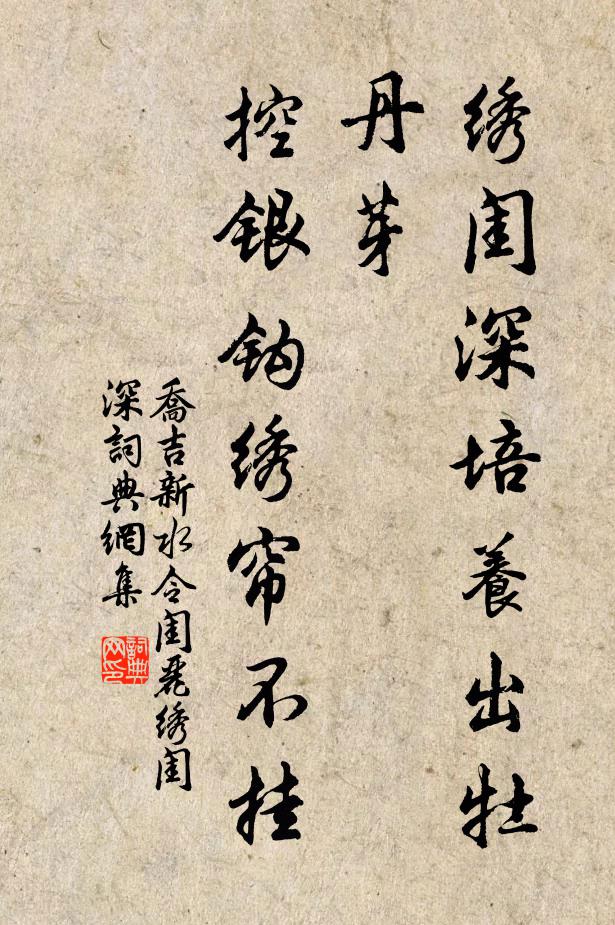 绣闺深培養出牡
丹芽
控银钩绣帘不挂
喬吉新水令闺麗绣闺
深詞典網集
詞典网印